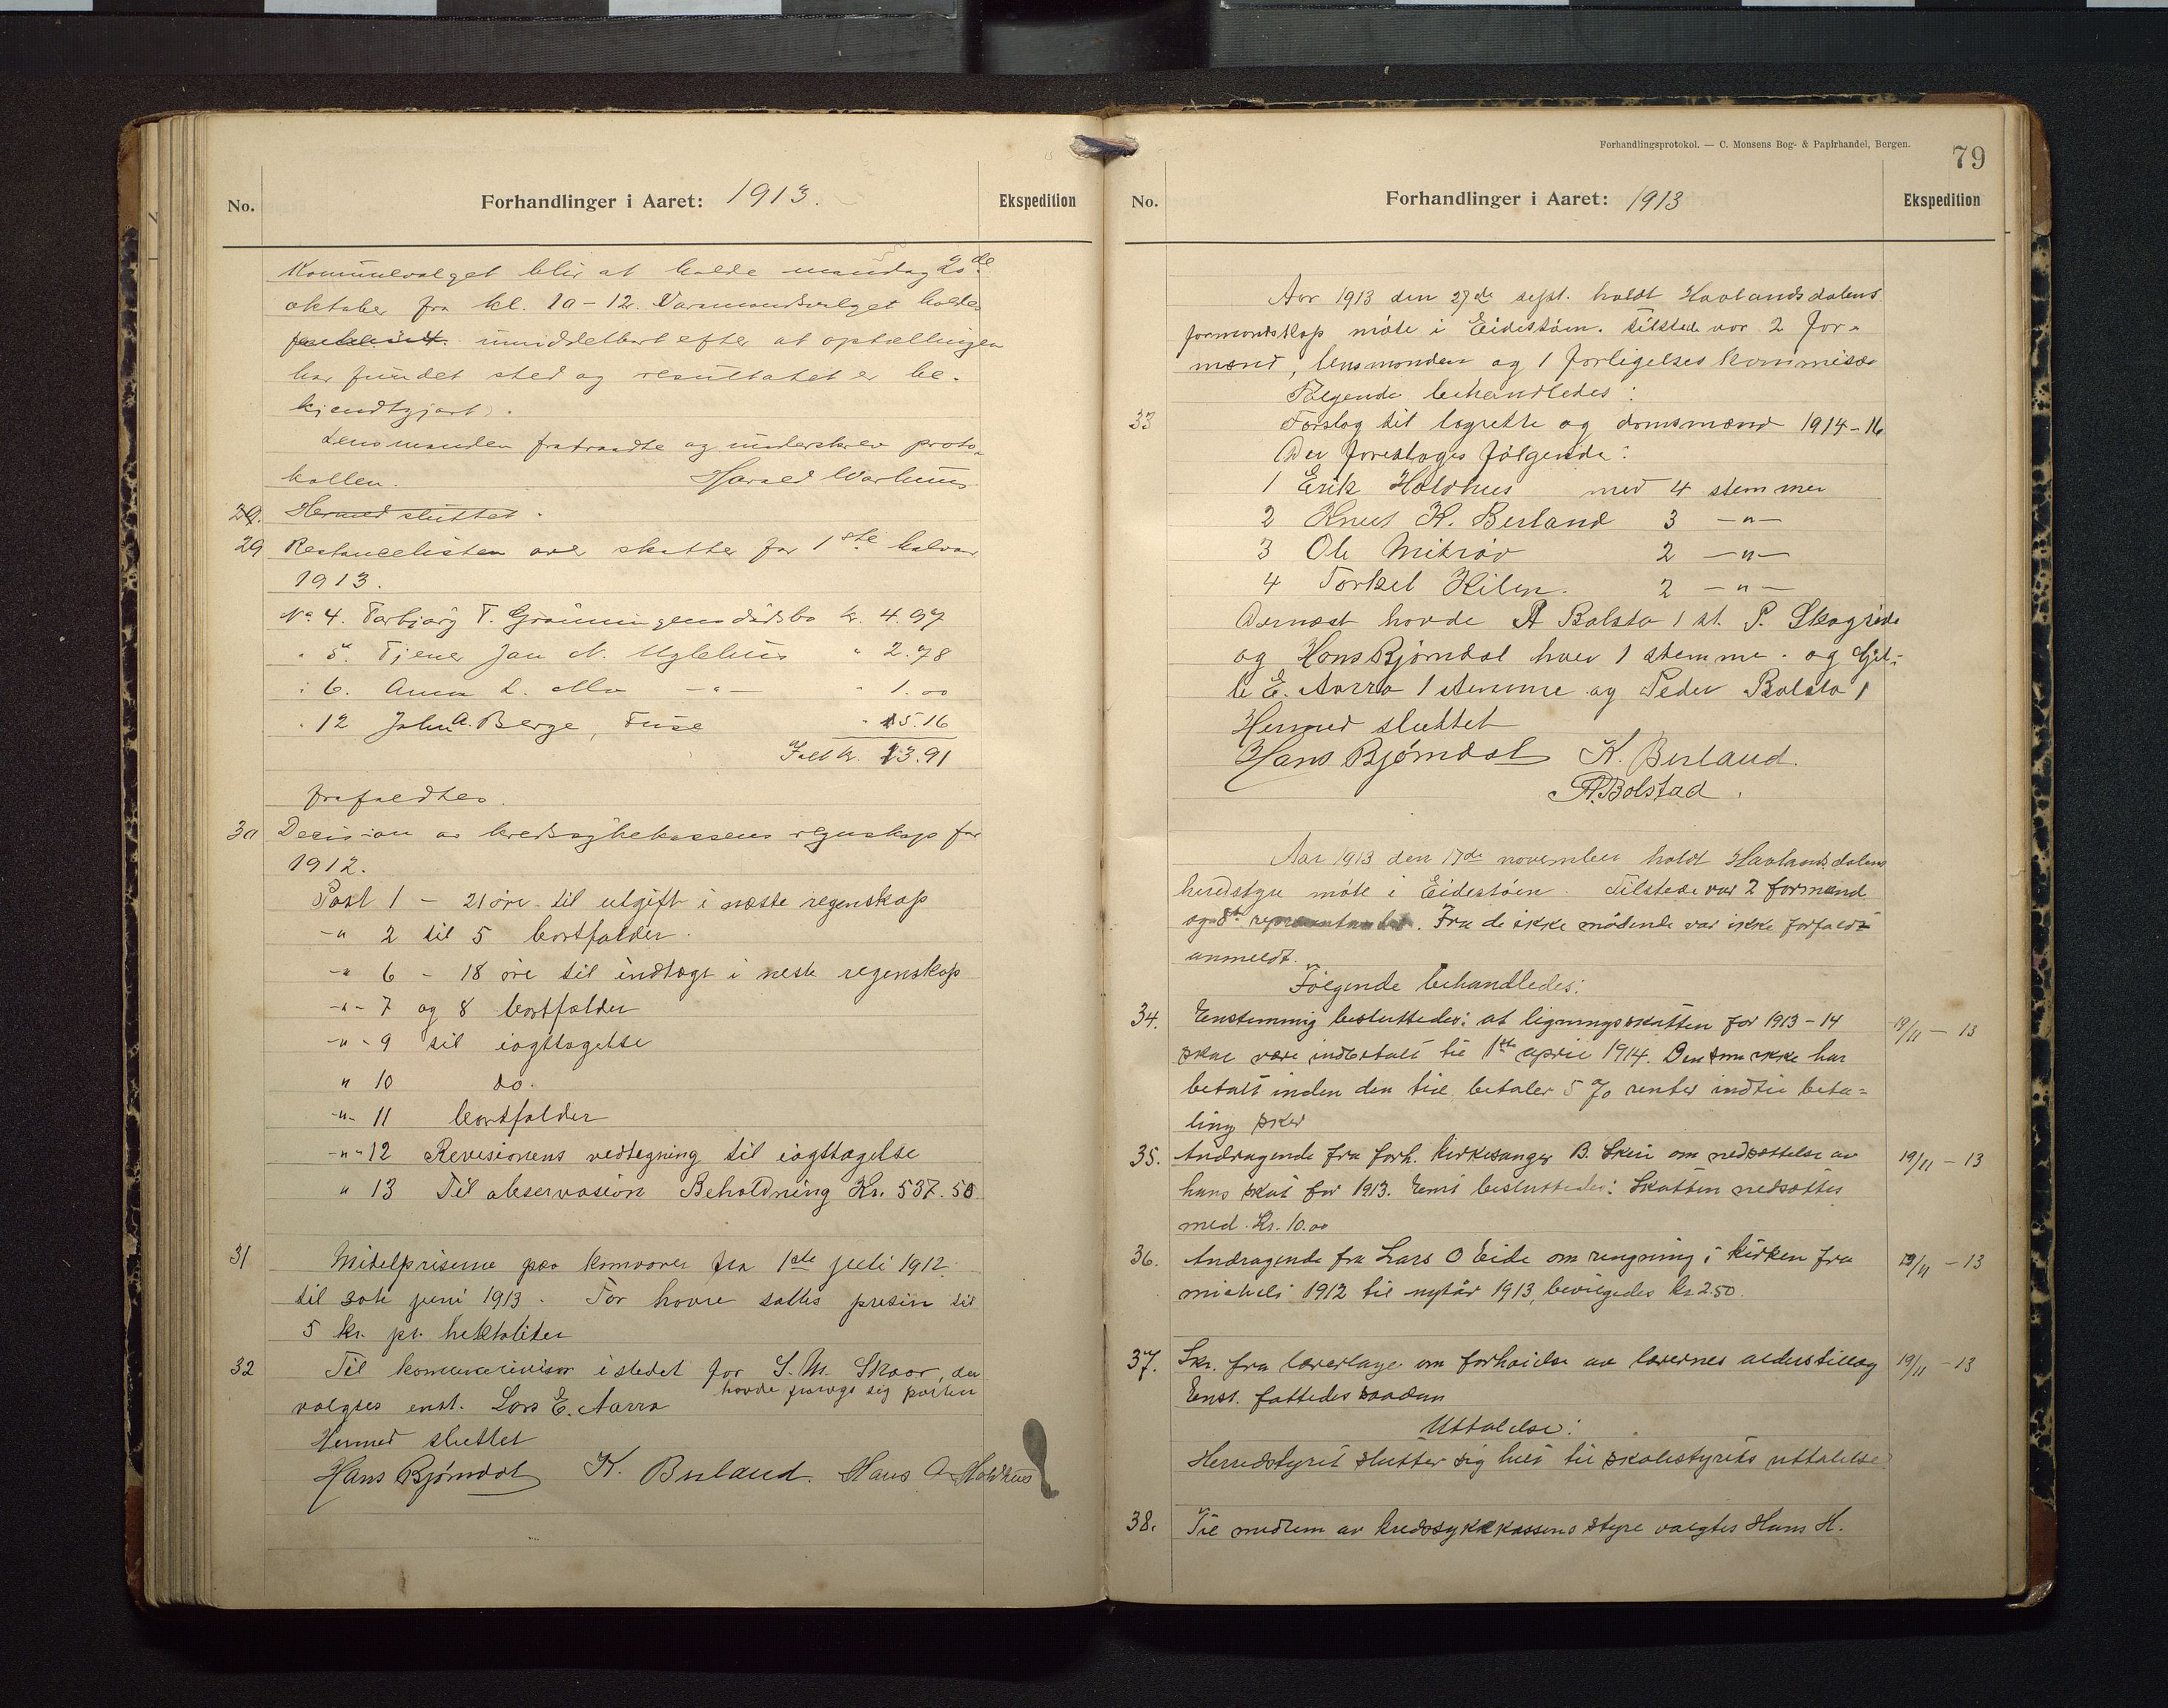 No.
Forhandlinger i Aaret: 1913.
Ekspedition
Kommunevalget blir at holde mandag 20de
oktober fra kl. 10-12. Varmandsvalget holdes
umiddelbart efter at optællingen
har fundet sted og resultatet er be-
kjendtgjort).
Lensmanden fratraadte og underskrev proto-
kollen. Harald Warhuus
29. Hermed sluttet.
29 Restancelisten over skatter for 1ste halvaar
1913.
No 4. Torbjørg T. Grønningens dødsbo kr. 4.97
" 5. Tjener Jan N. Uglehus " 2.78
" 6. Anna L. Mo -"- " 1.00
" 12 John A. Berge, Fuse " 15.16
Ialt kr. 23.91
frafaldtes.
30 Decision av kredssykekassens regnskap for
1912.
Post 1 - 21 øre til utgift i næste regenskap
-" 2 til 5 bortfalder.
-" 6 - 18 øre til indtægt i neste regenskap
-"- 7 og 8 bortfalder
-"- 9 til iagttagelse
" 10 do.
-"- 11 bortfalder
-"- 12 Revisionens vedtegning til iagttagelse
" 13 Til observasion Beholdning Kr. 537.50
31 Midelpriserne paa kornvarer fra 1ste juli 1912
til 30te juni 1913. For havre sattes prisin til
5 kr. pr. hektoliter
32 Til komunerivisor istedet for S. M. Skaar, der
havde frasagt sig posten
valgtes enst. Lars E. Aarra
Hermed sluttet
Hans Bjørndal K. Berland. Hans A Holdhus
Forhandlingsprotokol. — C. Monsens Bog- & Papirhandel, Bergen.
79
No.
Forhandlinger i Aaret: 1913
Ekspedition
Aar 1913 den 27de sept. holdt Haalandsdalens
formandskap møte i Eidestøen. Tilstede var 2 for-
mænd, lensmanden og 1 forligelses kommisær
Følgende behandledes:
33 Forslag til lagrette og domsmænd 1914-16
Der foreslages følgende:
1 Erik Holdhus med 4 stemmer
2 Knut K. Berland 3 -"-
3 Ole Mikrøv 2 -"-
4 Torkel Kilen. 2 -"-
Dernæst havde A Bolsta 1 st. P. Skogseide
og Hans Bjørndal hver 1 stemme. og Gjit-
le E. Aarra 1 stemme og Peder Bolsta 1
Hermed sluttet
Hans Bjørndal K. Berland.
A. Bolstad.
Aar 1913 den 17de november holdt Haalandsdalens
heredstyre møte i Eidestøen. Tilstede var 2 formænd
og 8 . Fra de ikke mødende var ikke forfald
anmeldt.
Følgende behandledes:
34. Enstemmig besluttedes: at ligningsskatten for 1913-14 19/11 - 13
skal være indbetalt til 1ste april 1914. Den som ikke har
betalt inden den tid, betaler 5 % renter indtil beta=
ling sker
35. Andragende fra forh. kirkesanger B. Skeie om nedsættelse av 19/11 - 13
hans skat for 1913. Enst besluttedes: Skatten nedsættes
med Kr. 10.00
36. Andragende fra Lars O Eide om rengning i kirken fra 19/11 - 13
micheli 1912 til nytår 1913, bevilgedes kr 2.50.
37. Skr. fra lærerlage om forhøielse av lærernes alderstillæg 19/11 - 13
Enst. fattedes saadan
Uttalelse:
Herredstyret slutter sig helt til skolestyrets uttalelse.
38. Til medlem av kredssykekassens styre valgtes Hans H.